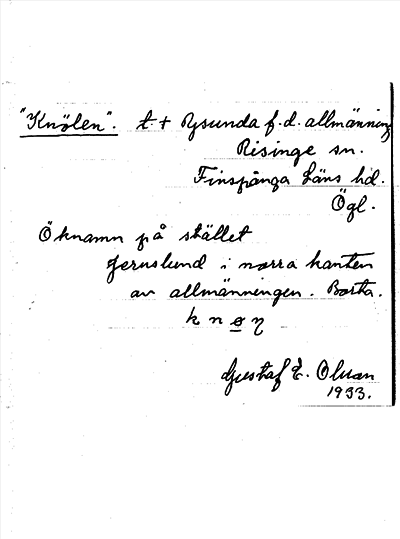 "Knölen". t. + Ysunda f.d. allmänning
Risinge sn.
Finspånga Läns hd.
Ögl.
Öknamn på stället
Jeruslund i norra kanten
av allmänningen. Borta.
k n ø
Gustaf E. Olsson
1933.